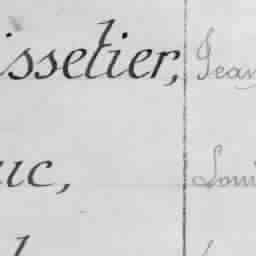 issetier, Jean
uc, Loui